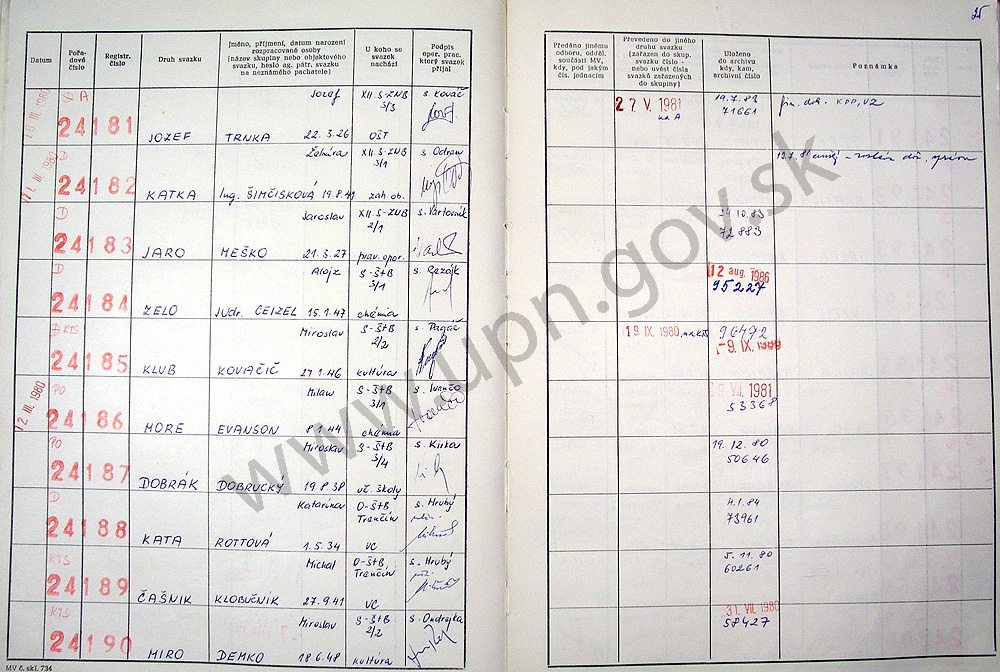 25
Datum
Pořa-
dové
číslo
Registr.
číslo
Druh svazku
Jméno, příjmení, datum narození
rozpracované osoby
(název skupiny nebo objektového
svazku, heslo ag. pátr. svazku
na neznámého pachatele)
U koho se
svazek
nachází
Podpis
oper. prac.
který svazek
přijal
Předáno jinému
odboru, odděl.
součásti MV,
kdy, pod jakým
čís. jednacím
Převedeno do jiného
druhu svazku
(zařazen do skup.
svazku číslo -
nebo uvést čísla
svazků zařazených
do skupiny)
Uloženo
do archivu
kdy, kam,
archivní číslo
Poznámka
D A Jozef XII. S-ZNB s. Kováč 27 V. 1981 19.7.83 KPP, VZ
24181 3/3 na A 71661
JOZEF TRNKA 22.3.26 OŠT
D Želmíra XII. S-ZNB s. Odran
24182 3/1
KATKA Ing. ŠIMČISKOVÁ 19.8.41 zah. ob.
D Jaroslav XII. S-ZNB s. Vartovník 10.83
24183 2/1 72883
JARO MEŠKO 21.3.27
D Alojz S-ŠtB 12 aug. 1986
24184 3/1 95227
ZELO JUDr. CEIZEL 15.1.47 chémia
D KTS Miroslav S-ŠtB s. Pagáč 19 IX. 1980 na KTS 96472
24185 2/2 -9. IX.
KLUB KOVAČIČ 27.1.46 kultúra
12. III. 1980
PO Milan S-ŠtB s. Ivančo VII. 1981
24186 3/1 53368
MORE EVANSON 8.1.44 chémia
PO Miroslav S-ŠtB 19.12.80
24187 3/4 50646
DOBRÁK DOBRUCKÝ 19.8.38 vč. školy
D Katarína O-ŠtB s. Hrubý 4.1.84
24188 Trenčín 73961
KATA ROTTOVÁ 1.5.34 VC
KTS Michal O-ŠtB s. Hrubý 5.11.80
24189 Trenčín 60261
ČAŠNIK KLOBUČNIK 27.9.41 VC
KTS Miroslav S-ŠtB s. Ondrejka 31. VII. 1980
24190 2/2 58427
MIRO DEMKO 18.6.48 kultúra
MV č. skl. 734
www.upn.gov.sk